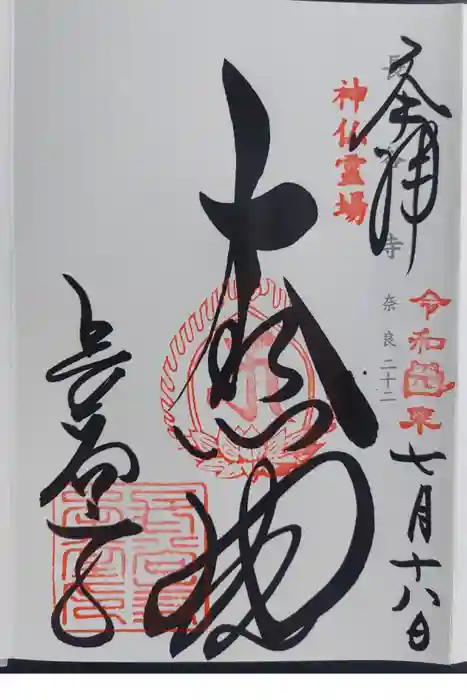 奉拝
長谷寺
奈良二十二
令和四年
七月十八日
神仏霊場
大悲閣
長谷寺